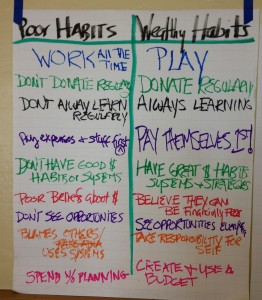 Poor Habits
WORK ALL THE
TIME
DON'T DONATE REGULARLY
DON'T ALWAYS LEARN
REGULARLY
Pay expenses + stuff first
DON'T HAVE GOOD $
HABITS or SYSTEMS
Poor Beliefs about $
DON'T SEE OPPORTUNITIES
BLAMES OTHERS/
USES SYSTEMS
SPEND % PLANNING
Wealthy Habits
PLAY
DONATE REGULARLY
ALWAYS LEARNING
PAY THEMSELVES 1ST!
HAVE GREAT $ HABITS
SYSTEMS + STRATEGIES
BELIEVE THEY CAN
BE FINANCIALLY FREE
SEE OPPORTUNITIES
TAKE RESPONSIBILITY FOR
SELF
CREATE + USE A
BUDGET